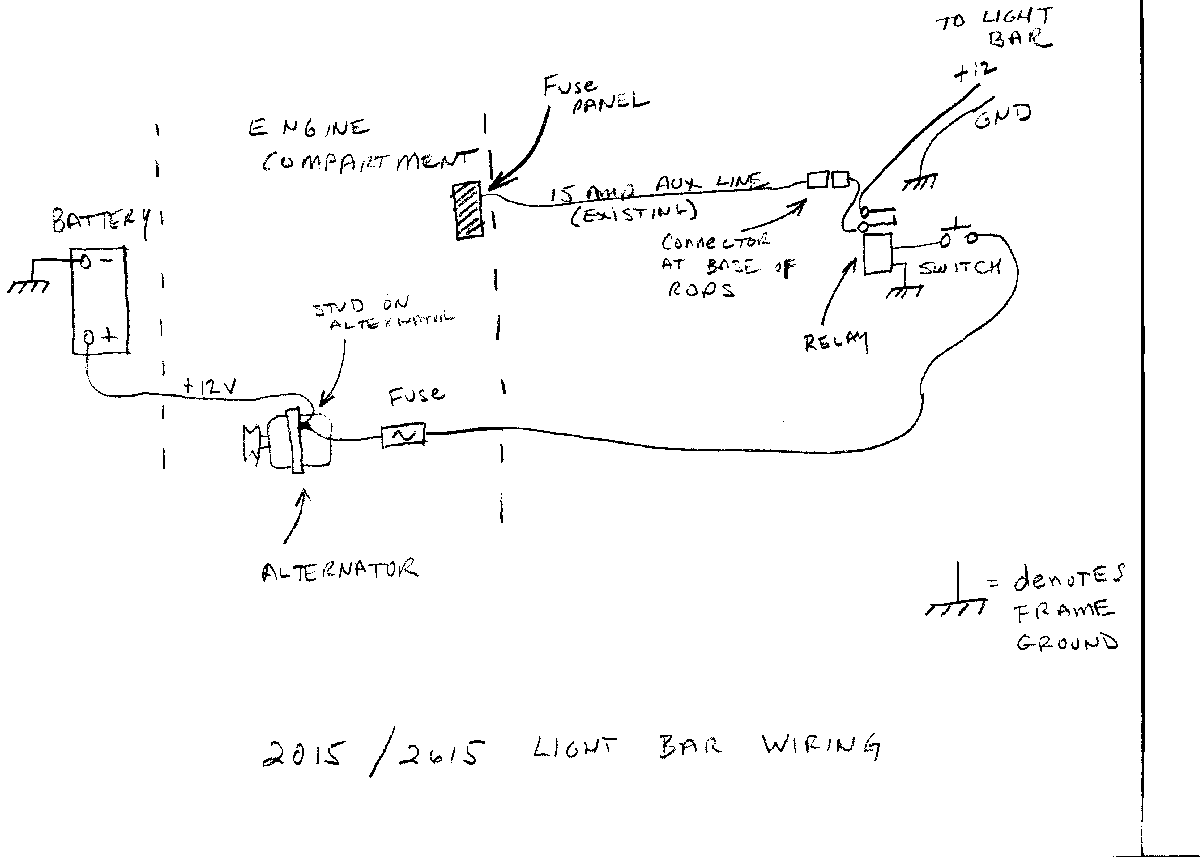 TO LIGHT
BAR
+12
GND
Fuse
PANEL
ENGINE
COMPARTMENT
15 AMP AUX LINE
(EXISTING)
BATTERY
-
+
CONNECTOR
AT BASE OF
ROPS
SWITCH
RELAY
STUD ON
ALTERNATOR
+12V
Fuse
ALTERNATOR
= denoTES
FRAME
GROUND
2015/2615 LIGHT BAR WIRING